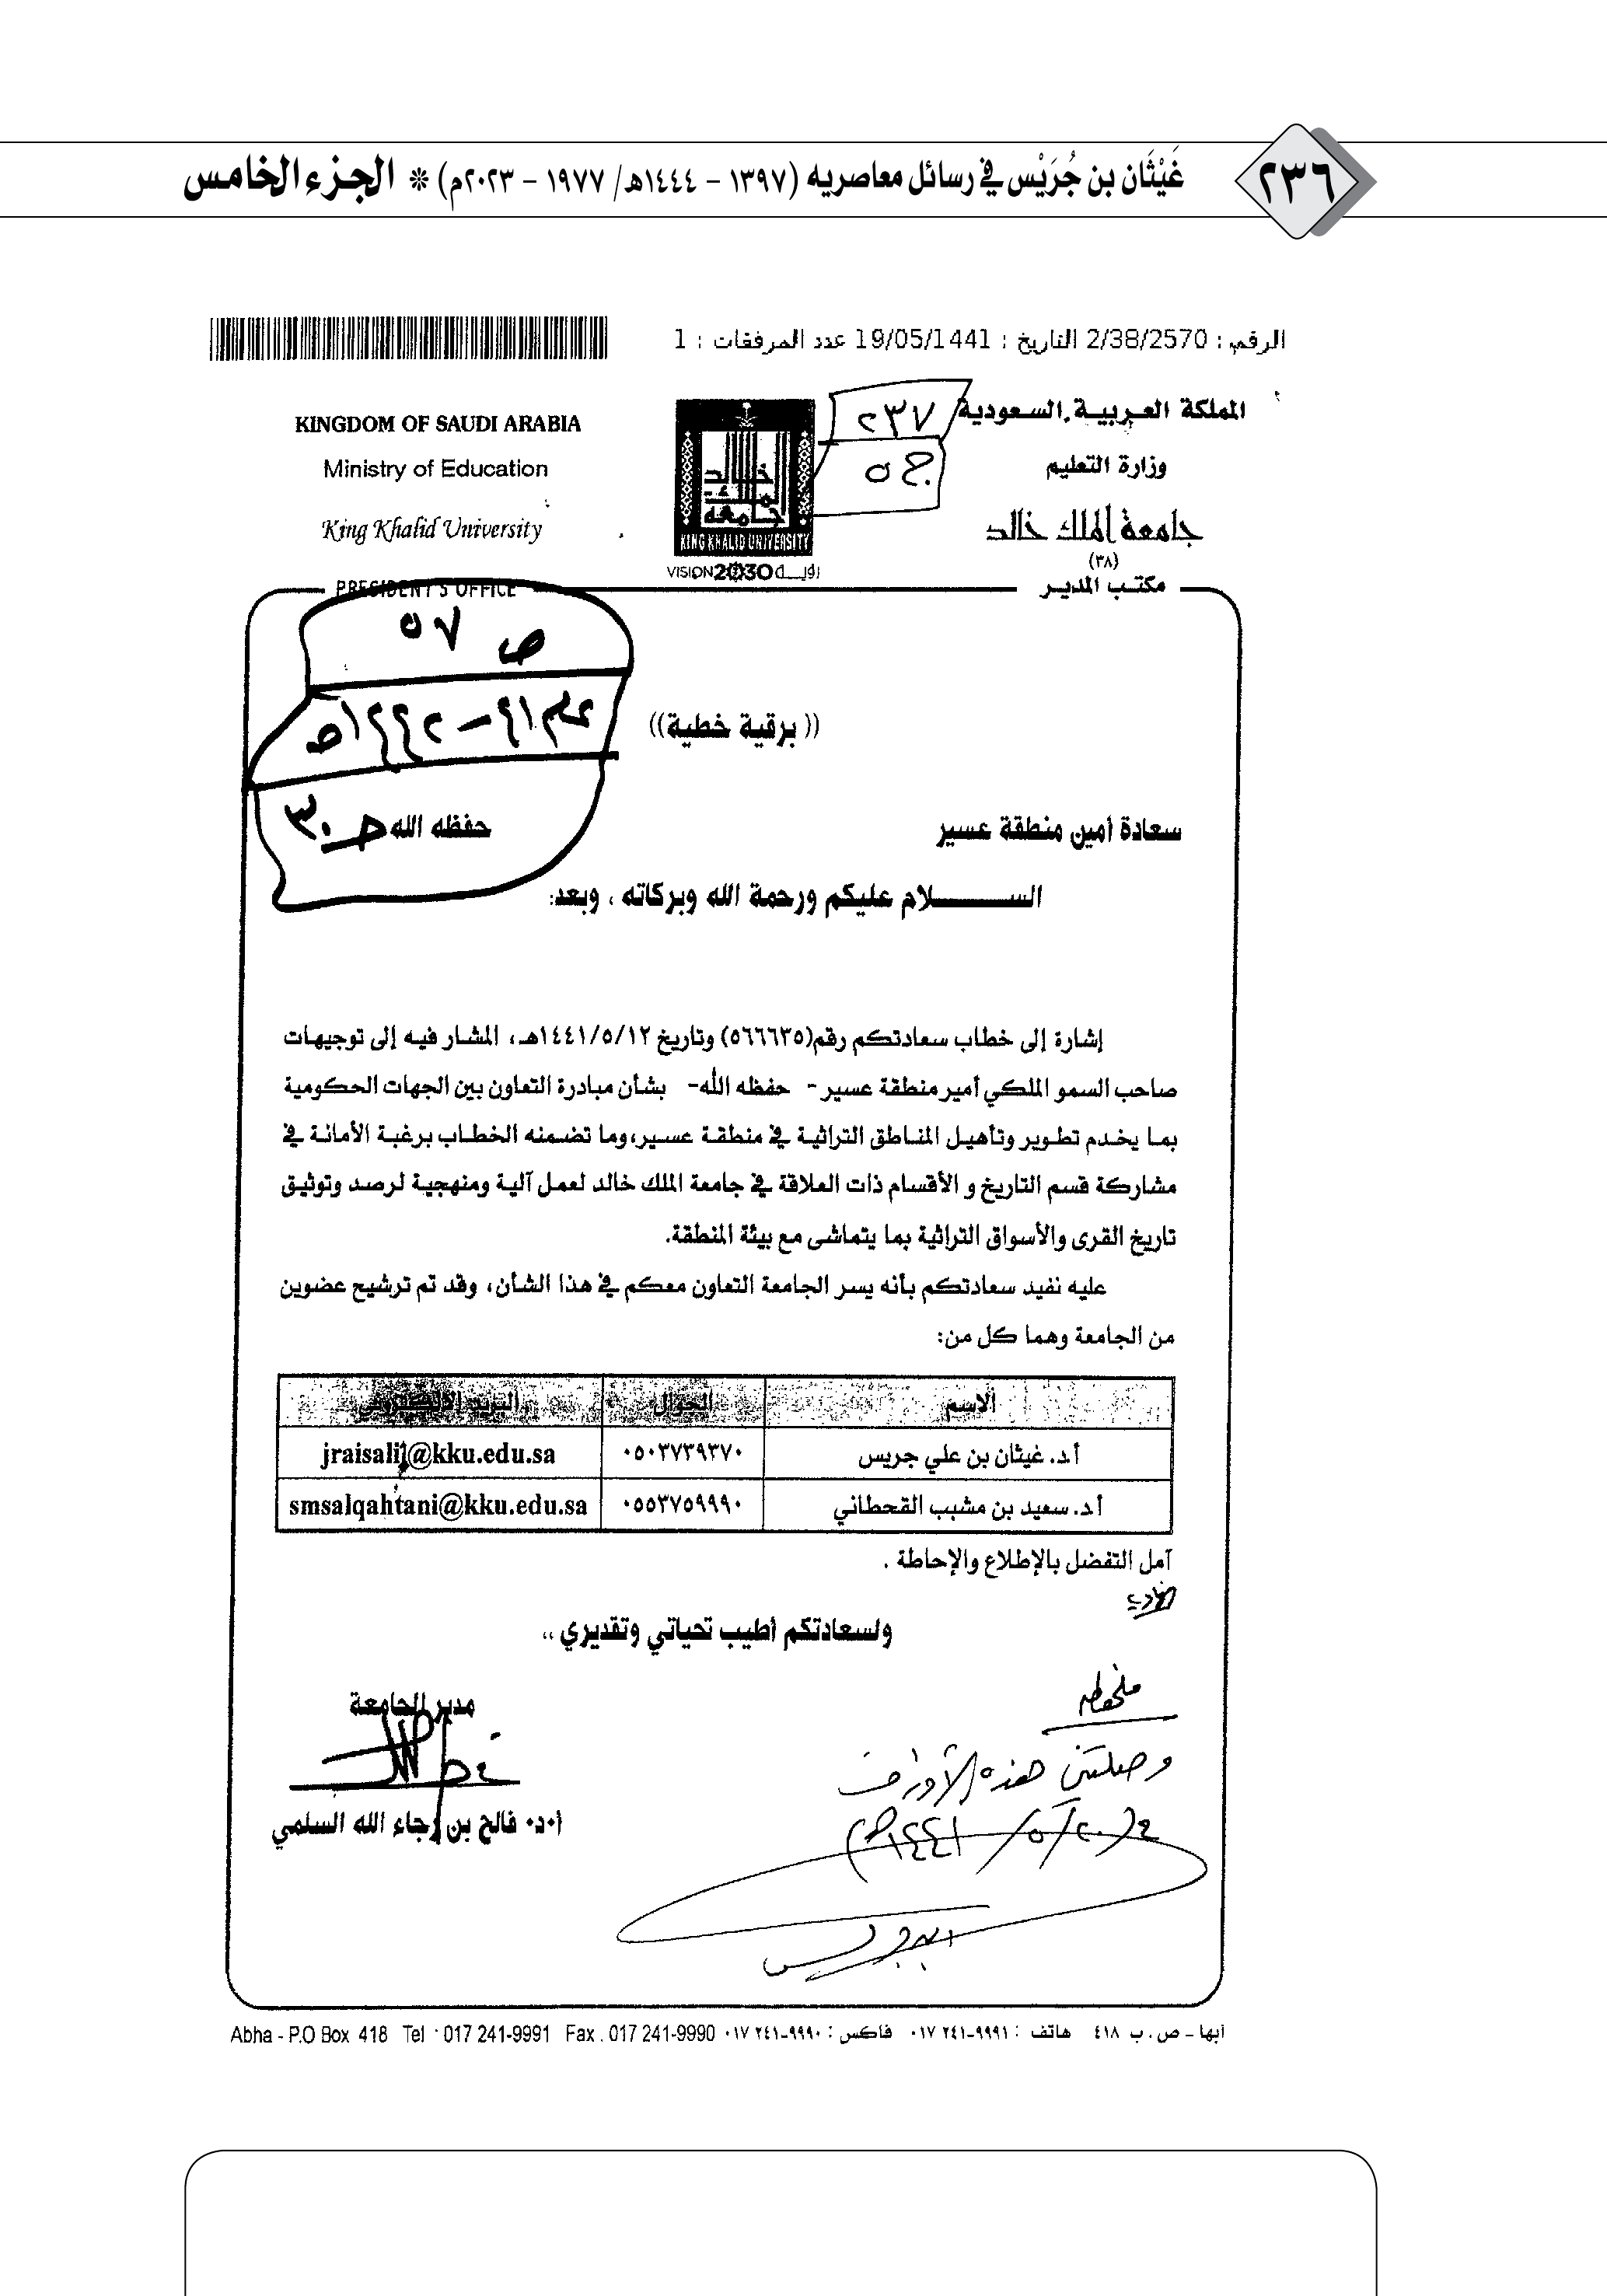 ٢٣٦
غَيْثَان بن جُرَيْس في رسائل معاصريه (١٣٩٧ – ١٤٤٤هـ/ ١٩٧٧ – ٢٠٢٣م) * الجزء الخامس
الرقم : 2/38/2570 التاريخ : 19/05/1441 عدد المرفقات : 1
المملكة العربية السعودية
وزارة التعليم
جامعة الملك خالد
(٣٨)
مكتب المدير
٢٣٧
ج ٥
خالد
الملك
جامعة
KING KHALID UNIVERSITY
VISION 2030 رؤية
KINGDOM OF SAUDI ARABIA
Ministry of Education
King Khalid University
PRESIDENT'S OFFICE
ص ٥٧
عام ٤١ – ١٤٤٢هـ
جـ ٣٠
(( برقية خطية))
سعادة أمين منطقة عسير حفظه الله
الســـــلام عليكم ورحمة الله وبركاته ، وبعد:
إشارة إلى خطاب سعادتكم رقم(٥٦٦٦٣٥) وتاريخ ١٤٤١/٥/١٢هـ، المشار فيه إلى توجيهات
صاحب السمو الملكي أمير منطقة عسير - حفظه الله- بشأن مبادرة التعاون بين الجهات الحكومية
بما يخدم تطوير وتأهيل المناطق التراثية في منطقة عسير،وما تضمنه الخطاب برغبة الأمانة في
مشاركة قسم التاريخ و الأقسام ذات العلاقة في جامعة الملك خالد لعمل آلية ومنهجية لرصد وتوثيق
تاريخ القرى والأسواق التراثية بما يتماشى مع بيئة المنطقة.
عليه نفيد سعادتكم بأنه يسر الجامعة التعاون معكم في هذا الشأن، وقد تم ترشيح عضوين
من الجامعة وهما كل من:
الاسم الجوال البريد الالكتروني
أ.د. غيثان بن علي جريس ٠٥٠٣٧٣٩٣٧٠ jraisali1@kku.edu.sa
أ.د. سعيد بن مشبب القحطاني ٠٥٥٣٧٥٩٩٩٠ smsalqahtani@kku.edu.sa
آمل التفضل بالإطلاع والإحاطة .
ولسعادتكم أطيب تحياتي وتقديري ،،
مدير الجامعة
أ٠د٠ فالح بن رجاء الله السلمي
ملحوظه
وصلتني هذه الأوراق
في (٢٠/٥/١٤٤١هـ)
ابن جريس
أبها - ص . ب ٤١٨ هاتف : ٩٩٩١-٢٤١ ٠١٧ فاكس : ٩٩٩٠-٢٤١ ٠١٧ Abha - P.O Box 418 Tel : 017 241-9991 Fax . 017 241-9990